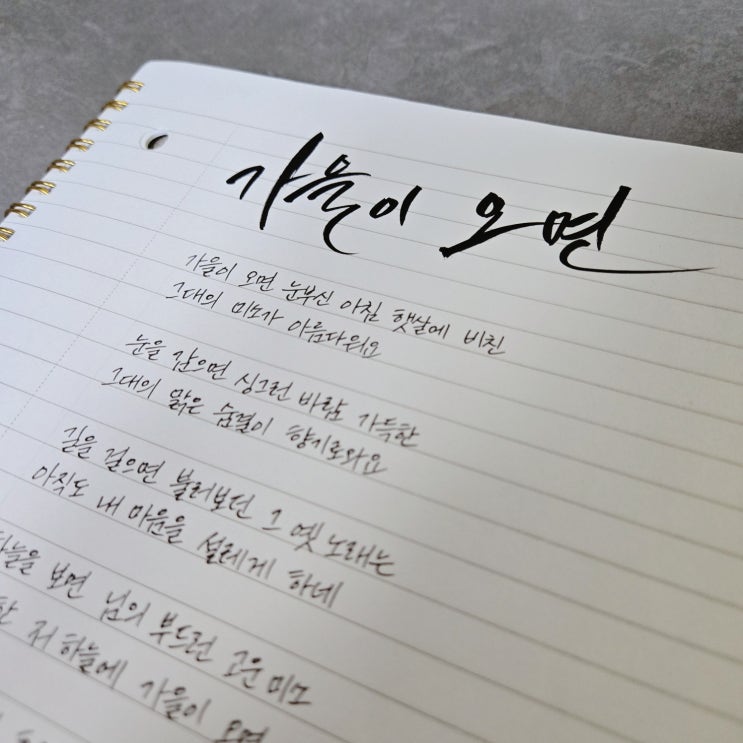 가을이 오면
가을이 오면 눈부신 아침 햇살에 비친
그대의 미소가 아름다워요
눈을 감으면 싱그런 바람 가득한
그대의 맑은 숨결이 향기로와요
길을 걸으면 불러보던 그 옛 노래는
아직도 내 마음을 설레게 하네
하늘을 보면 님의 부드런 고운 미소
저 하늘에 가을이 오면